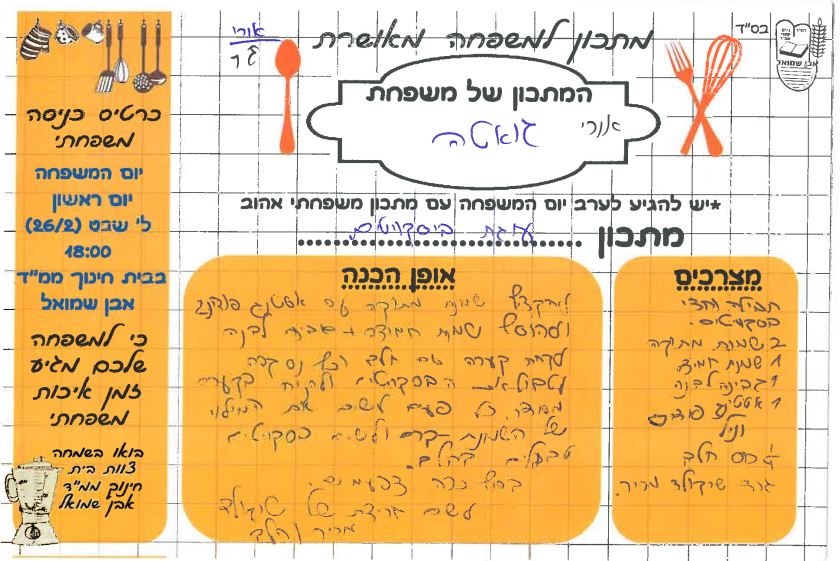 בס"ד
אבן שמואל
אורי
מתכון למשפחה מאושרת
המתכון של משפחת
אורי גואטה
*יש להגיע לערב יום המשפחה עם מתכון משפחתי אהוב
מתכון עוגת ביסקוויטים
מצרכים
חבילה וחצי
בסקוויטים.
2 שמנת מתוקה
1 שמנת חמוצה
1 גבינה לבנה
1 אינסטנט פודינג
וניל
1/4 כוס חלב
גרד שוקולד מריר.
אופן הכנה
להקציף שמנת מתוקה עם אינסטנט פודינג
ולהוסיף שמנת חמוצה + גבינה לבנה
לקחת קערה עם חלב
לטבול את הבסקוויטים ולהניח בקערה
כל פעם לשים את המילוי
של השמנת ולשים בסקוויטים
טבולים בחלב.
בסוף ככה פעמים.
לשים של שוקולד
מריר וחלב
כרטיס כניסה
משפחתי
יום המשפחה
יום ראשון
ל' שבט (26/2)
18:00
בבית חינוך ממ"ד
אבן שמואל
כי למשפחה
שלכם מגיע
זמן איכות
משפחתי
בואו בשמחה
צוות בית
חינוך ממ"ד
אבן שמואל